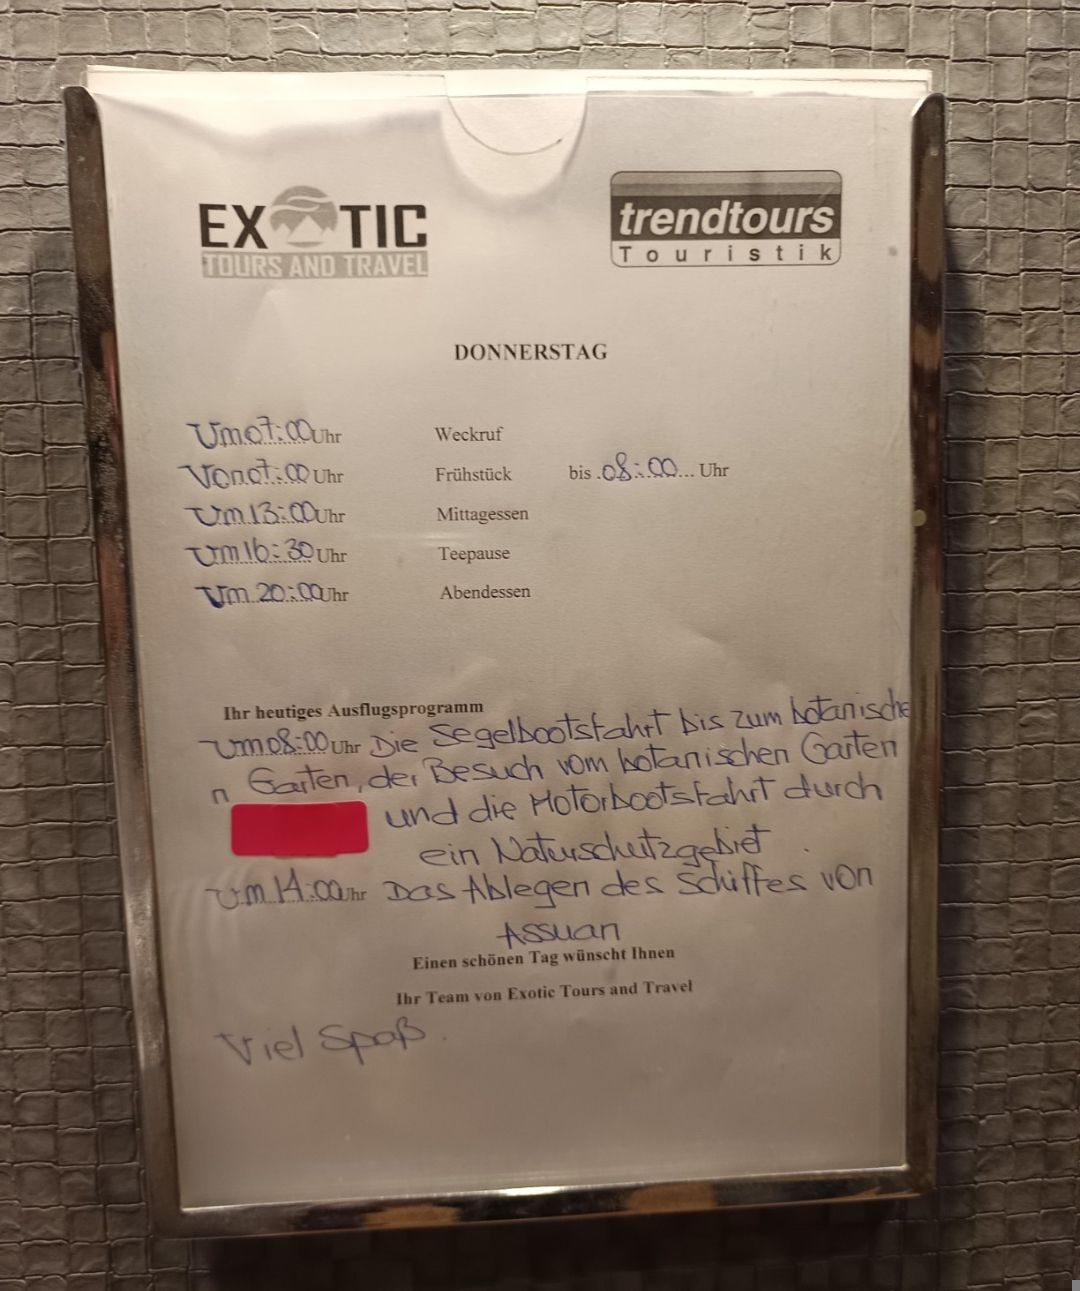 EXOTIC
TOURS AND TRAVEL
trendtours
Touristik
DONNERSTAG
Um 07:00 Uhr Weckruf
Von 07:00 Uhr Frühstück bis 08:00 Uhr
Um 13:00 Uhr Mittagessen
Um 16:30 Uhr Teepause
Um 20:00 Uhr Abendessen
Ihr heutiges Ausflugsprogramm
Um 08:00 Uhr Die Segelbootsfahrt bis zum botanische
n Garten, der Besuch vom botanischen Garten
und die Motorbootsfahrt durch
ein Naturschutzgebiet
Um 14:00 Uhr Das Ablegen des Schiffes von
Assuan
Einen schönen Tag wünscht Ihnen
Ihr Team von Exotic Tours and Travel
Viel Spaß.